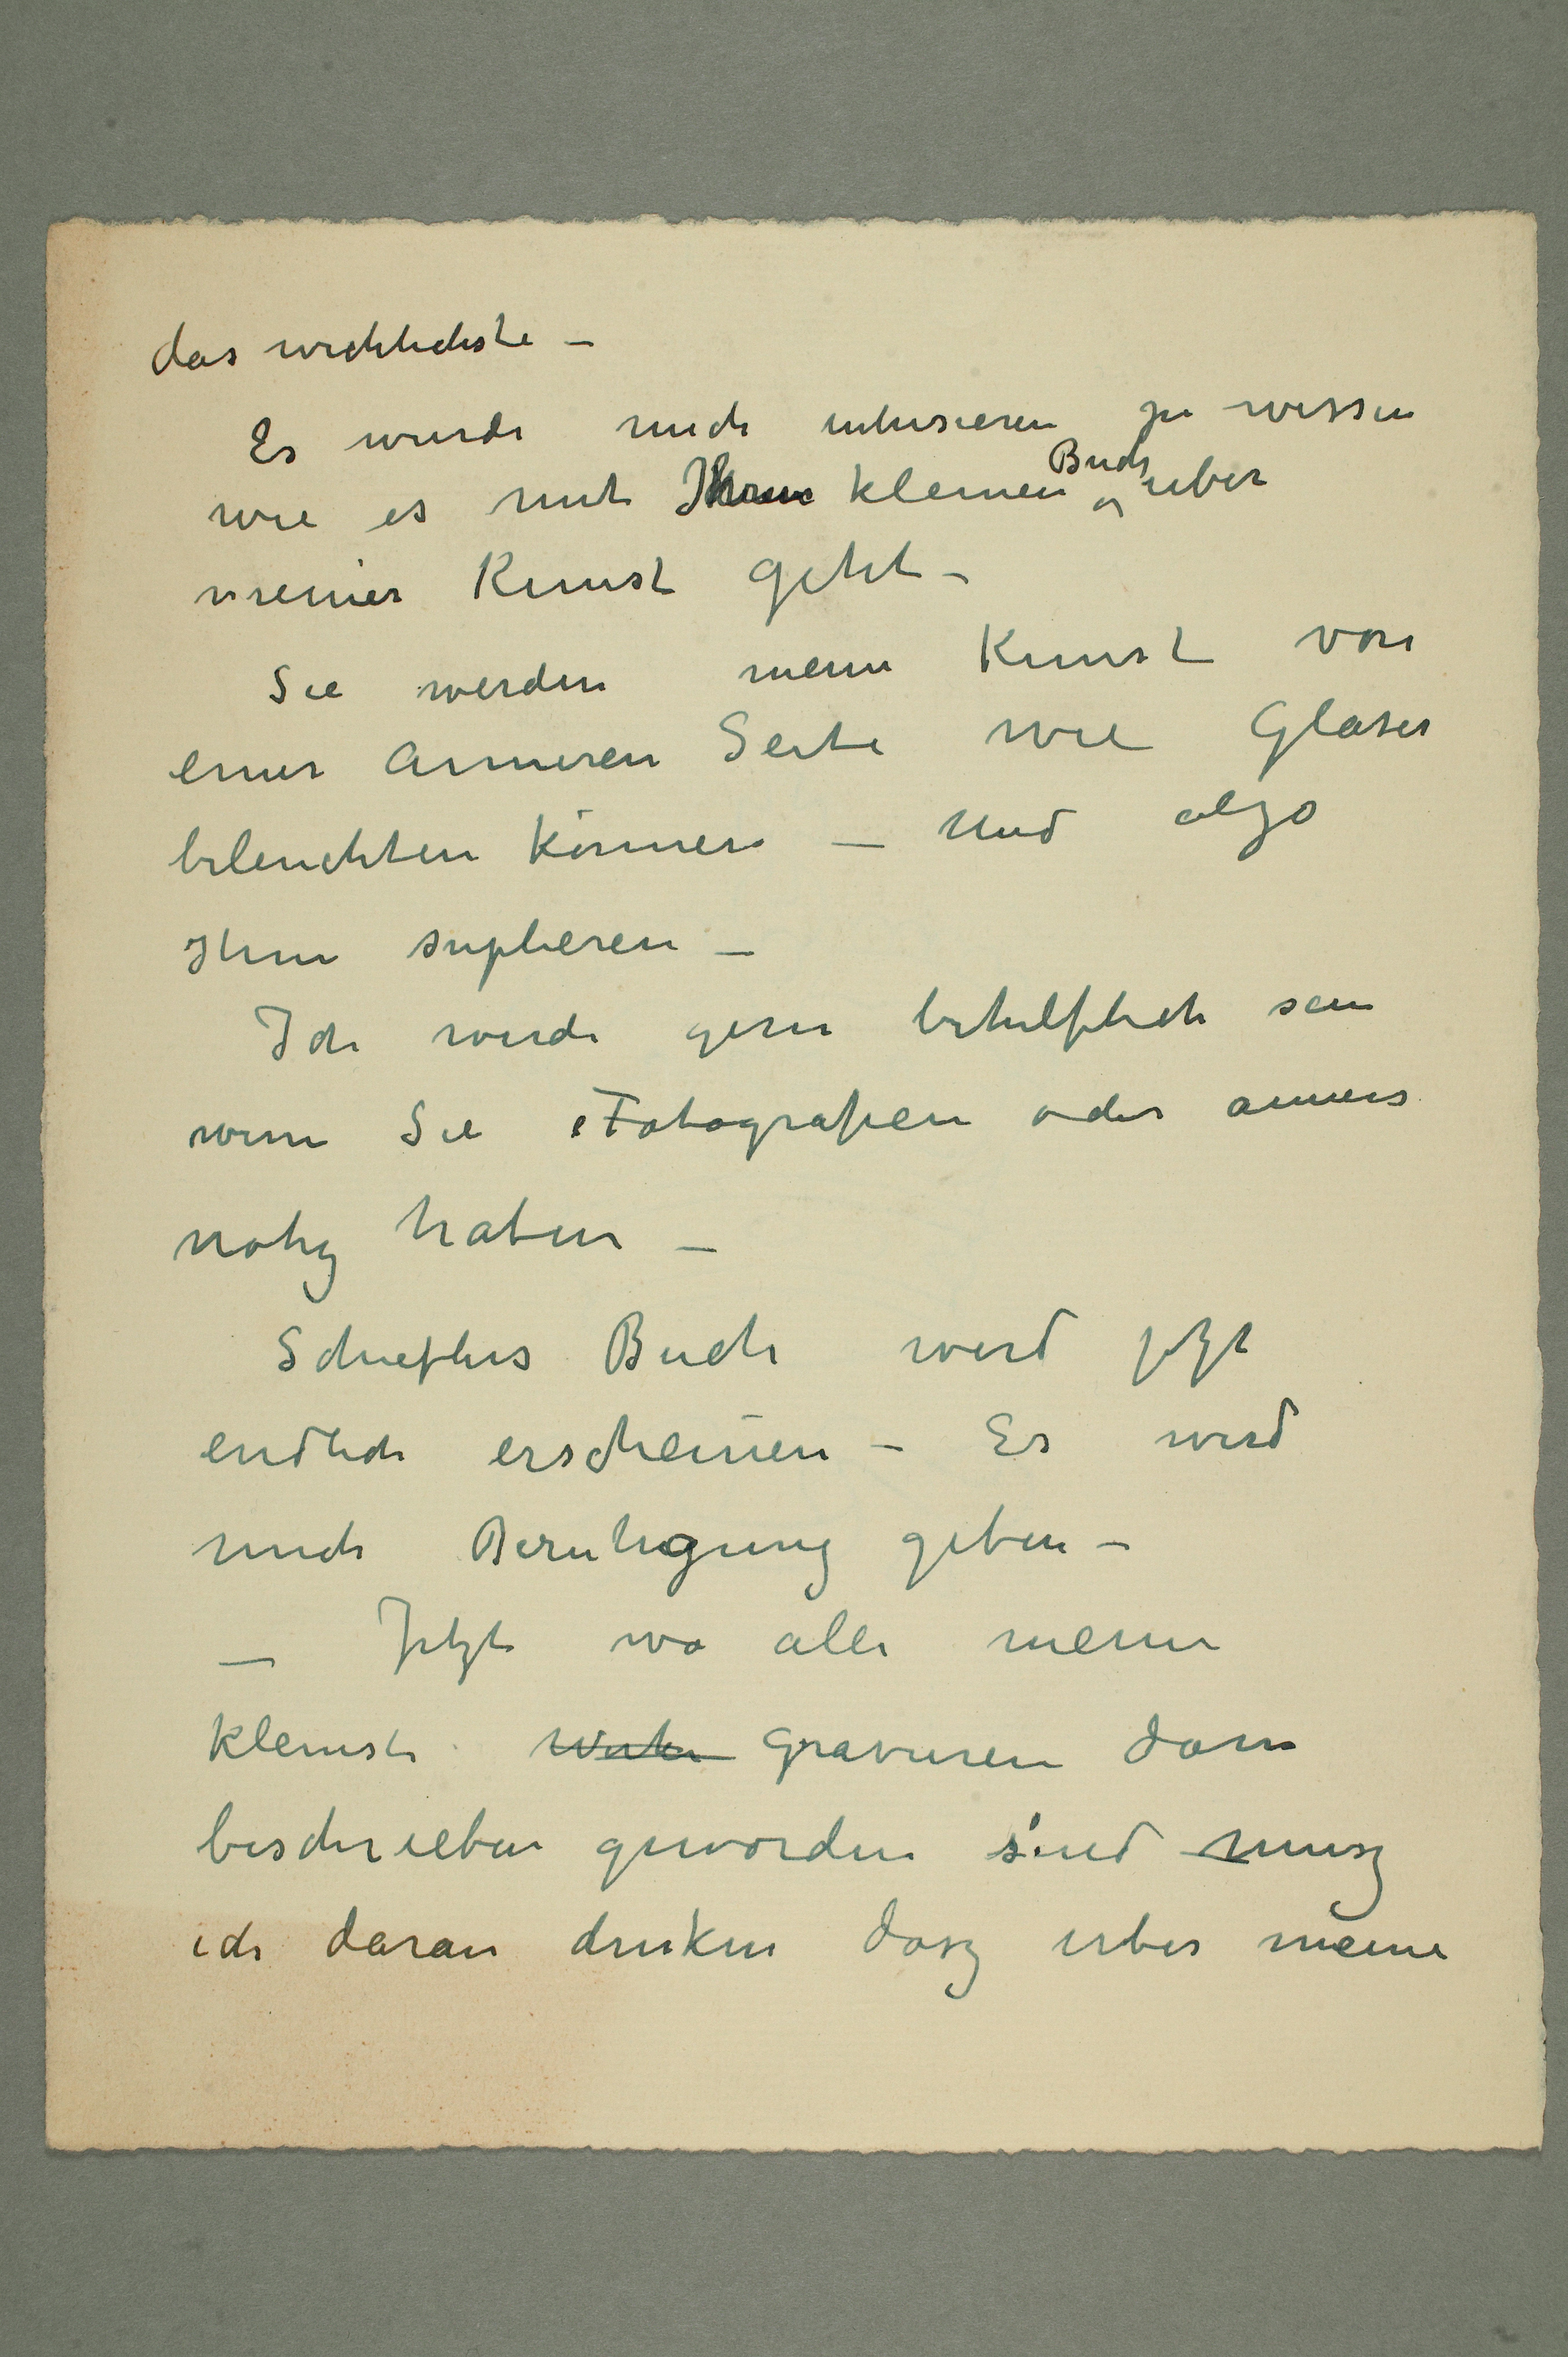 das wichtichste –
Es wurde mich intresieren zu wissen
wie es mit Ihren kleinen Buch über
meiner Kunst geht –
Sie werden meine Kunst von
einer anneren Seite wie Glaser
beleuchten können – und algo
Ihm suplieren –
Ich werde gern behilflich sein
wenn Sie Fotografien oder anners
nötig haben –
Schieflers Buch werd jetzt
endlich erscheinen – Es wird
mich Beruhigung geben –
– Jetzt wo alle meine
kleinste Werke Gravuren darin
beschrieben geworden sind musz
ich daran denken dasz über meine